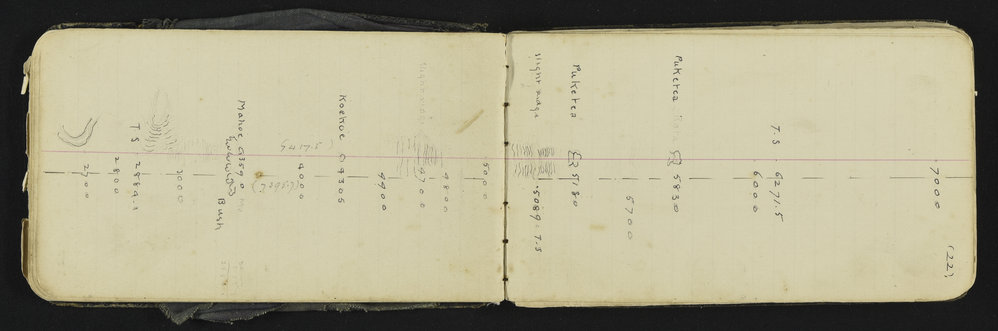 (22)
7000
T.S. 6271.5
6000
Puketea 5830
5700
Puketea 5180
slight ridge 5089 T.S
5000
4800
4700
4400
Koekoe 4305
4000
Mahoe 3590
Bush
3000
TS 2884.1
2800
2700